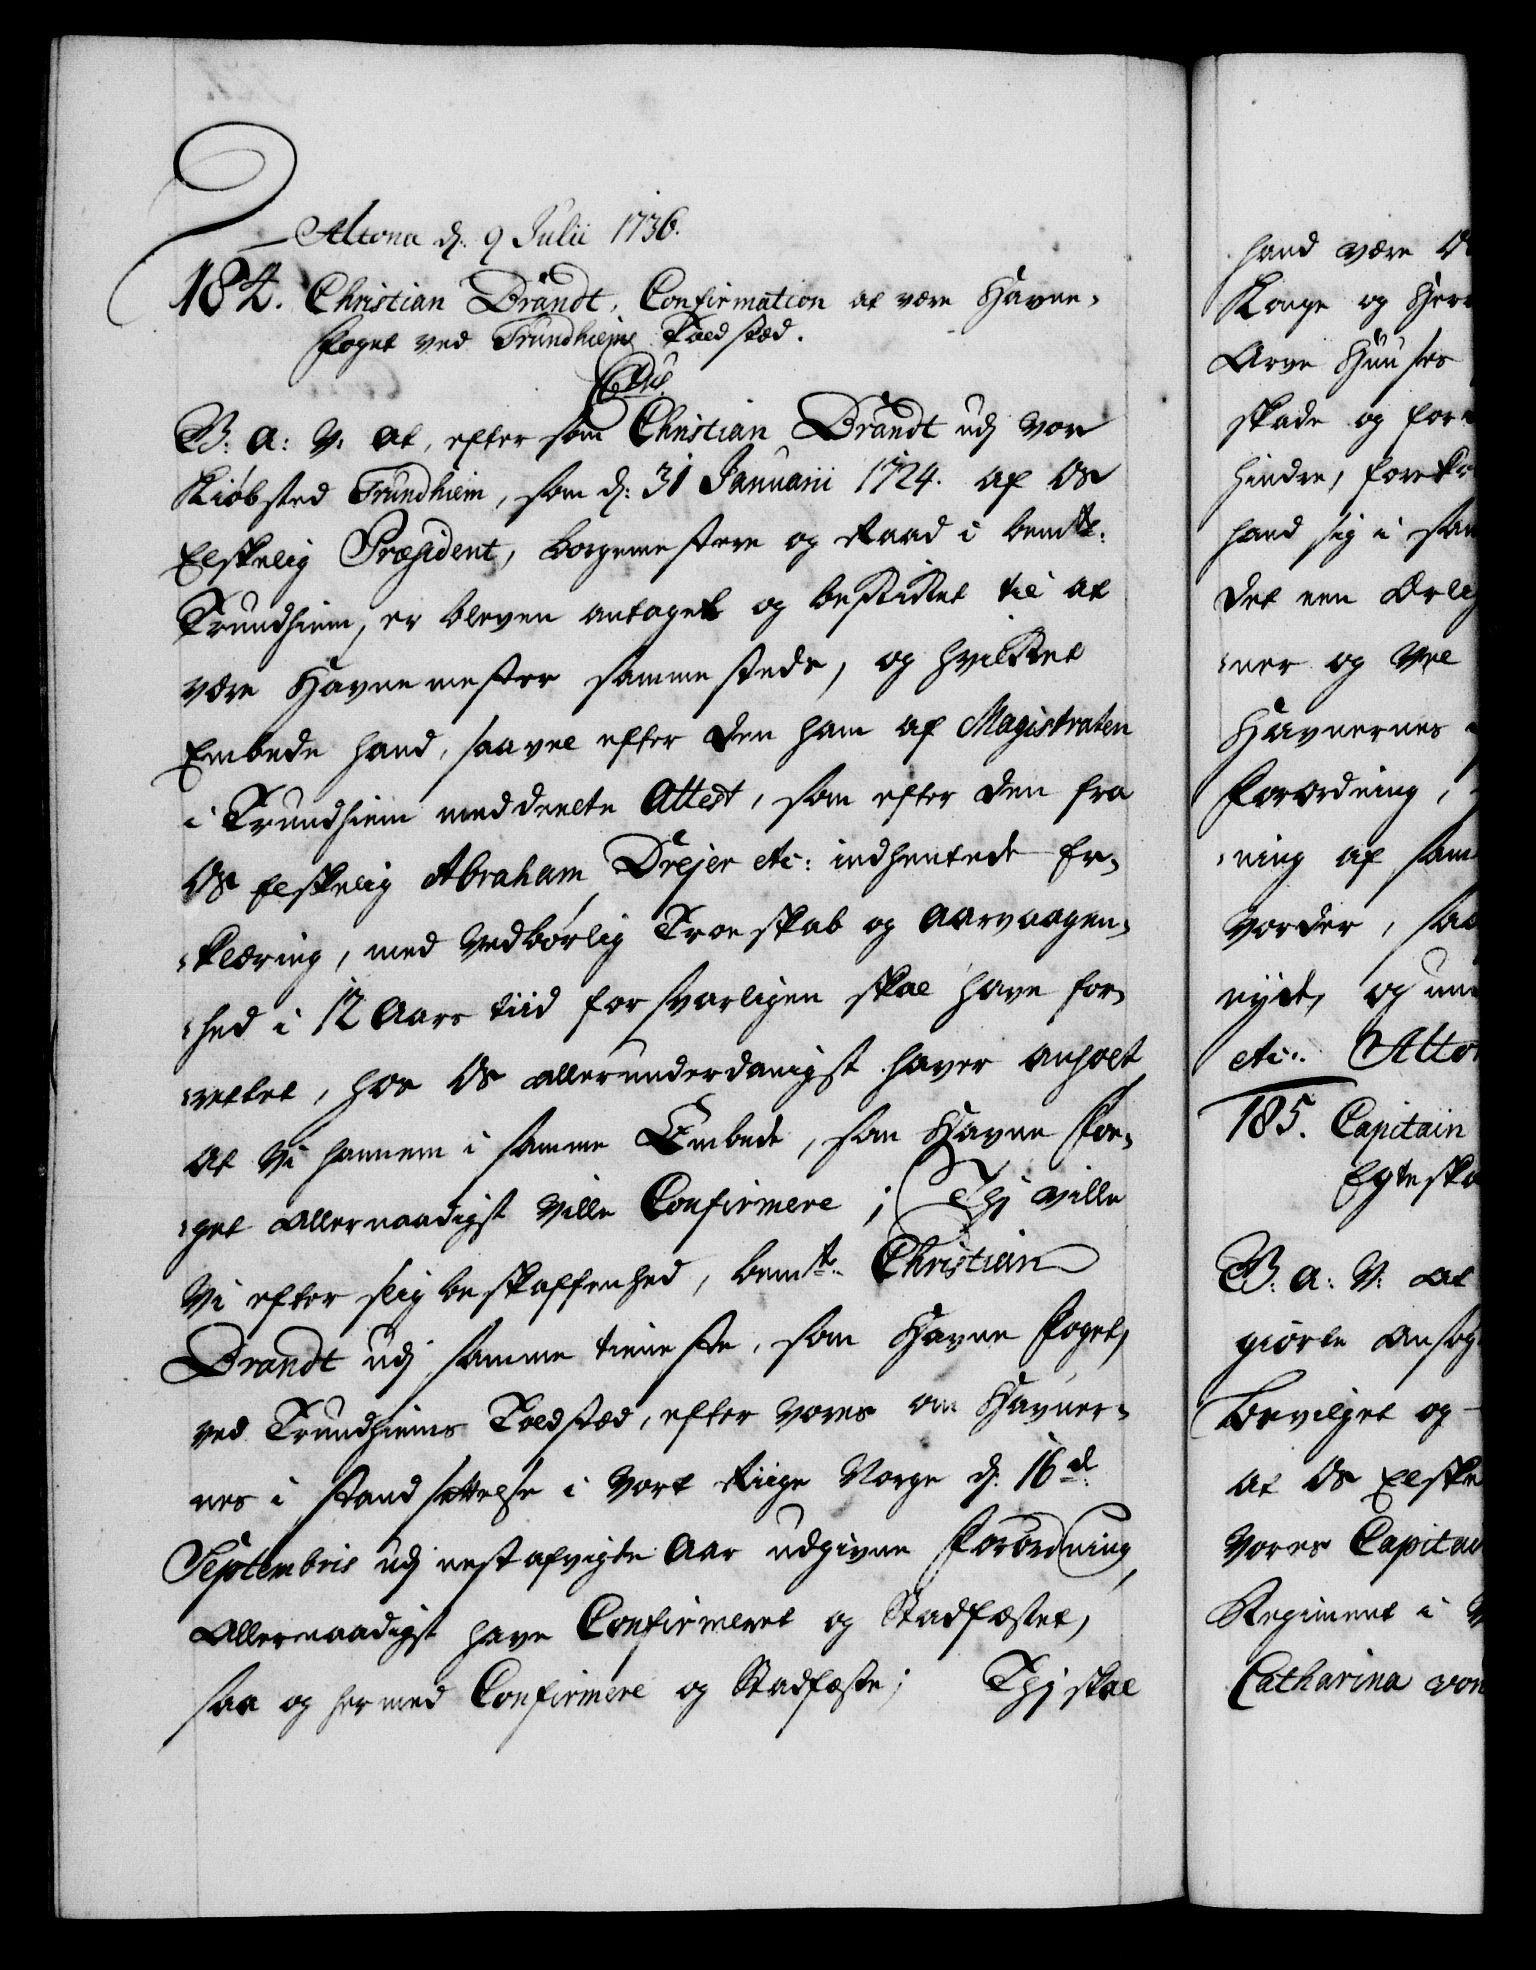 Altona d. 9 Julii 1736.
184. Christian Brandt, Confirmation at være Havne-
foget ved Trundhiems Toldsted.
C6tus.
G: A: V: at, efter som Christian Brandt udj vor
Kiøbsted Trundhiem, som d: 31 Januarii 1724. af Os
Elskelig Præsident, borgemestere og Raad i bemte:
Trundhiem, er bleven antaget og beskikket til at
være Havnemester sammesteds, og hvilket
Embede hand, saavel efter den ham af Magistraten
i Trundhiem meddeelte Attest, som efter den fra
Os Elskelig Abraham Drejer etc: indhentede Er-
-klæring, med vedbørlig Troeskab og Aarvaagen-
-hed i 12 Aars tiid forsvarligen skal have for-
-rettet, hos Os allerunderdanigst haver anholdt
at Vi hannem i samme Embede, som Havne Fo-
-get allernaadigst ville Confirmere; Thj ville
Vi efter slig beskaffenhed, bemte: Christian
Brandt udj samme tieneste, som Havne Foget,
ved Trundhiems Toldsted, efter vores om Havner-
nes i stand settelse i Vort Riige Norge d. 16de
Septembris udj nestafvigte Aar udgivne Forordning,
Allernaadigst have Confirmeret og Stadfæstet,
saa og hermed Confirmere og Stadfæste; Thj skal
hand være
Konge og Herr
Arve Huuses
skade og for
hindre, forekom
hand sig i sam
det een Ærlig
-ner og vel
Havnernes
Forordning,
-ning af sam
vorder, saa
nyde, og
etc: Alto
185. Capitain
Egteska
G: A: V: at
giorte ansøg
bevilget og
at Os Elske
vores Capitai
Regiment i
Catharina von